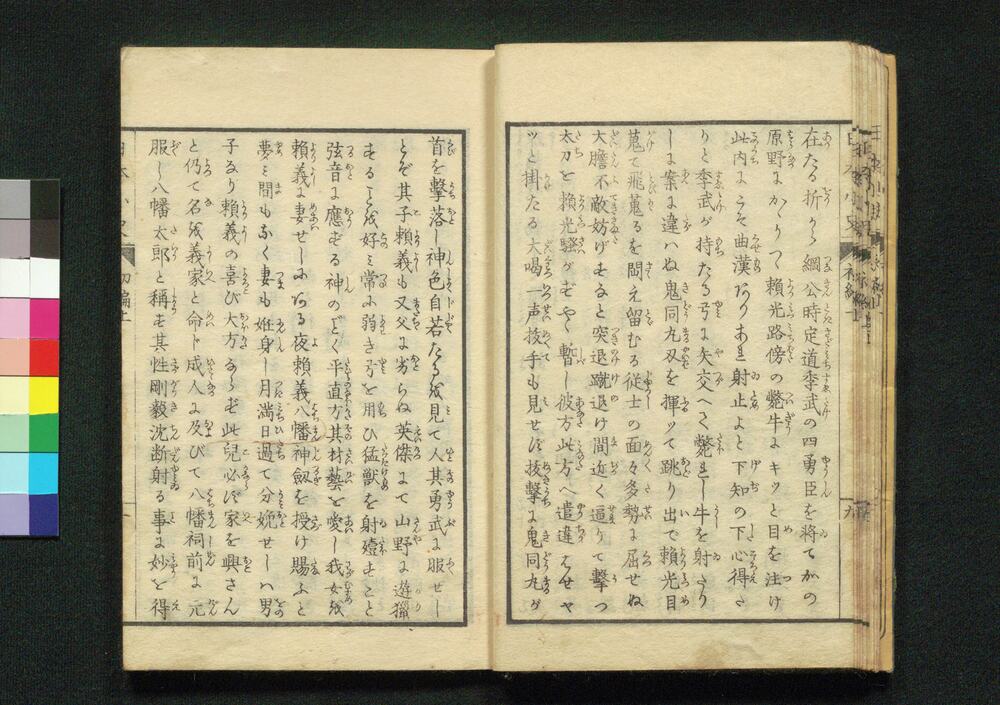 在たる折から綱公時定道季武の四勇臣を将てかの
原野にかゝりつゝ頼光路傍の斃牛にキッと目を注け
此内にこそ曲漢ありあれ射止よと下知の下心得た
りと季武が持たる弓に矢交へさく斃れし牛を射たり
しに案に違ハぬ鬼同丸刄を揮ッて跳り出で頼光目
蒐て飛蒐るを間え留むる従士の面々多勢に屈せぬ
大膽不敵妨げすると突退蹴退け間近く逼りて撃つ
太刀を頼光騒がずやゝ暫し彼方此方へ遣違はせヤ
ッと掛たる大喝一声抜手も見せず抜撃に鬼同丸が
首を撃落し神色自若たるを見て人其勇武に服せし
とぞ其子頼義も又父に劣らぬ英傑にて山野に遊獵
することを好ミ常に弱き弓を用ひ猛獣を射殪すこと
弦音に應ずる神のごとく平直方其材藝を愛し我女を
頼義に妻せしにある夜頼義八幡神劔を授け賜ふと
夢ミ間もなく妻も姙身し月満日過て分娩せしハ男
子なり頼義の喜び大方ならず此兒必ず家を興さん
と仍て名を義家と命ド成人に及びて八幡祠前に元
服し八幡太郎と稱す其性剛毅沈断射る事に妙を得
日本小史
初編上
九